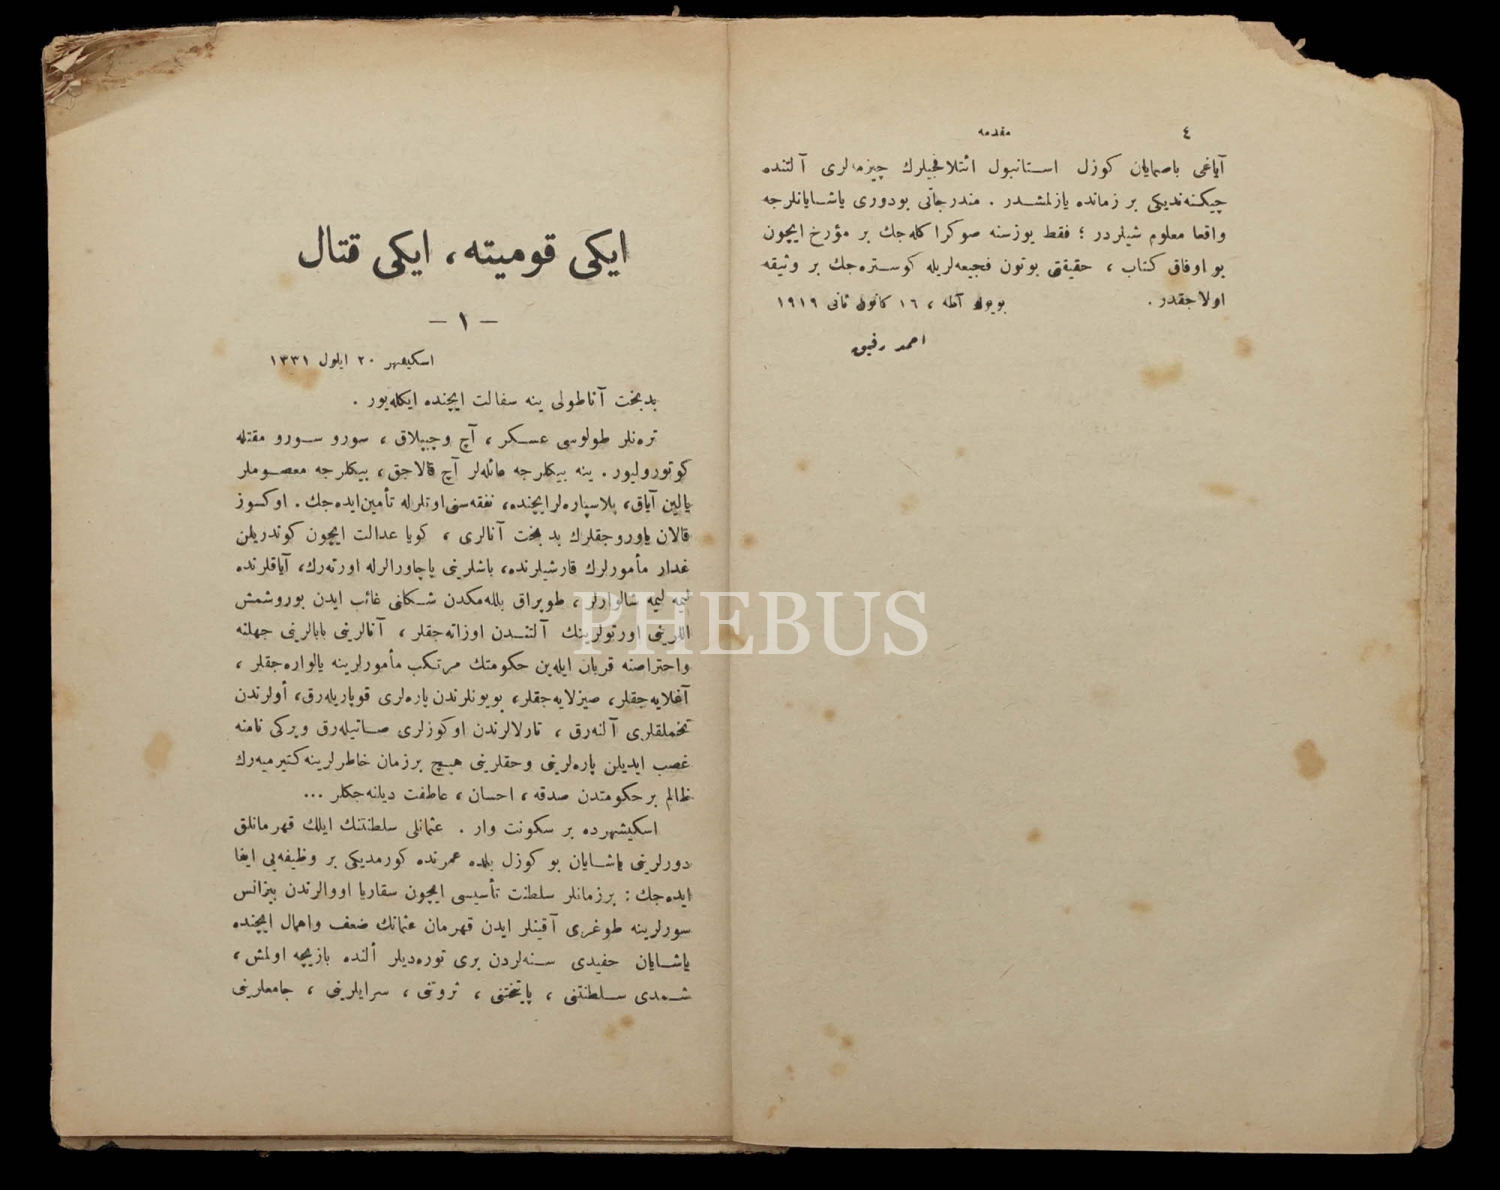 ٤
مقدمه
آیاغی باصمایان کوزل استانبول ائتلافجیلرك چیزمه‌لری آلتنده
چیکنه‌ندیکی بر زمانده یازلمشدر . مندرجاتی بودوری یاشایانلرجه
واقعا معلوم شیلردر ؛ فقط یوزسنه صوکرا کله‌جك بر مؤرخ ایچون
بو اوفاق کتاب ، حقیقتی بوتون فجیعه‌لریله کوستره‌جك بر وثیقه
اولاجقدر .
بویوك آطه ، ١٦ کانون ثانی ١٩١٩
احمد رفیق
ایکی قومیته ، ایکی قتال
– ١ –
اسکیشهر ٢٠ ایلول ١٣٣١
بدبخت آناطولی ینه سفالت ایچنده ایکله‌یور .
تره‌نلر طولوسی عسکر ، آچ وچیپلاق ، سورو سورو مقتله
کوتورولیور . ینه بیکلرجه عائله‌لر آچ قالاجق ، بیکلرجه معصوملر
یالین آیاق، پلاسپاره‌لر ایچنده، نفقه‌سنی اوتلرله تأمین ایده‌جك . اوکسوز
قالان یاوروجقلرك بدبخت آنالری ، کویا عدالت ایچون کوندریلن
غدار مأمورلرك قارشیلرنده، باشلرینی پاچاورالرله اورته‌رك، آیاقلرنده
لیمه لیمه شالوارلر ، طوپراق بللمکدن شکلنی غائب ایدن بوروشمش
اللرینی اورتولرینك آلتندن اوزاته‌جقلر ، آنالرینی بابالرینی جهلنه
واحتراصنه قربان ایله‌ین حکومتك مرتکب مأمورلرینه یالواره‌جقلر ،
آغلایه‌جقلر، صیزلایه‌جقلر، بویونلرندن پاره‌لری قوپاریله‌رق، أولرندن
تخملقلری آلنه‌رق ، تارلالرندن اوکوزلری صاتیله‌رق ویرکی نامنه
غصب ایدیلن پاره‌لرینی وحقلرینی هیچ برزمان خاطرلرینه کتیرمیه‌رك
ظالم برحکومتدن صدقه ، احسان ، عاطفت دیلنه‌جکلر ...
اسکیشهرده بر سکونت وار . عثمانلی سلطنتنك ایلك قهرمانلق
دورلرینی یاشایان بو کوزل بلده عمرنده کورمدیکی بر وظیفه‌یی ایفا
ایده‌جك : برزمانلر سلطنت تأسیسی ایچون سقاریا اووالرندن بیزانس
سورلرینه طوغری آقینلر ایدن قهرمان عثمانك ضعف واهمال ایچنده
یاشایان حفیدی سنه‌لردن بری توره‌دیلر ألنده بازیچه اولمش ،
شمدی سلطنتنی ، پایتختنی ، ثروتنی ، سرایلرینی ، جامعلرینی
PHEBUS